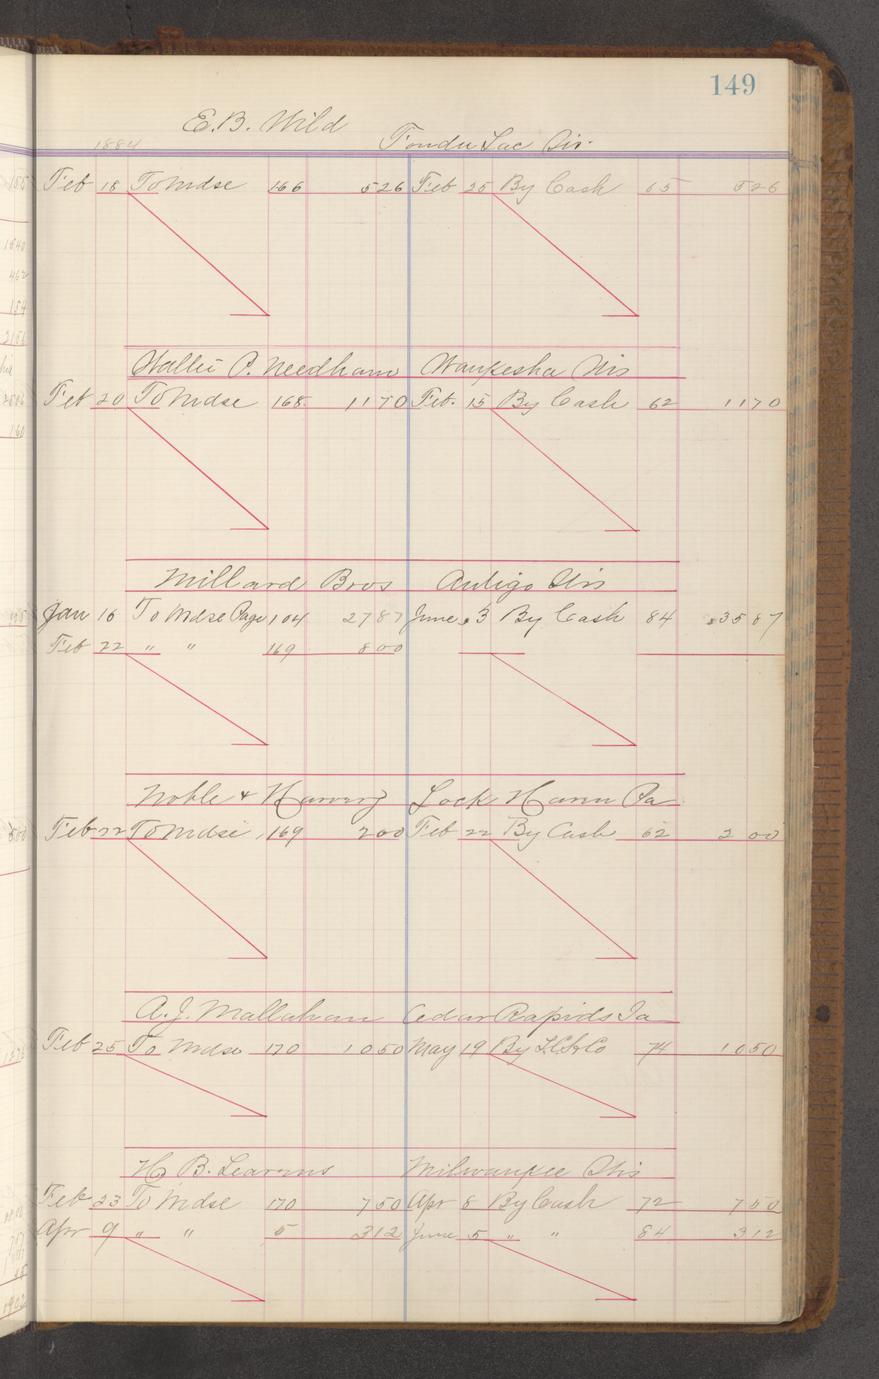 149
E.B. Wild Fondu Lac Wis
1884
Feb 18 To Mdse 166 526 Feb 25 By Cash 65 526
P. Needham Waukesha Wis
Feb 20 To Mdse 168 1170 Feb. 15 By Cash 62 1170
Millard Bros Antigo Wis
Jan 16 To Mdse Page 104 2787 June 3 By Cash 84 3587
Feb 22 " " 169 800
Noble & Harvey Lock Haven Pa
Feb 22 To Mdse 169 200 Feb 22 By Cash 62 200
A.J. Mallahan Cedar Rapids Ia
Feb 25 To Mdse 170 1050 May 19 By 74 1050
H B. Stearns Milwaukee Wis
Feb 23 To Mdse 170 750 Apr 8 By Cash 72 750
Apr 9 " " 5 312 June 5 " " 84 312